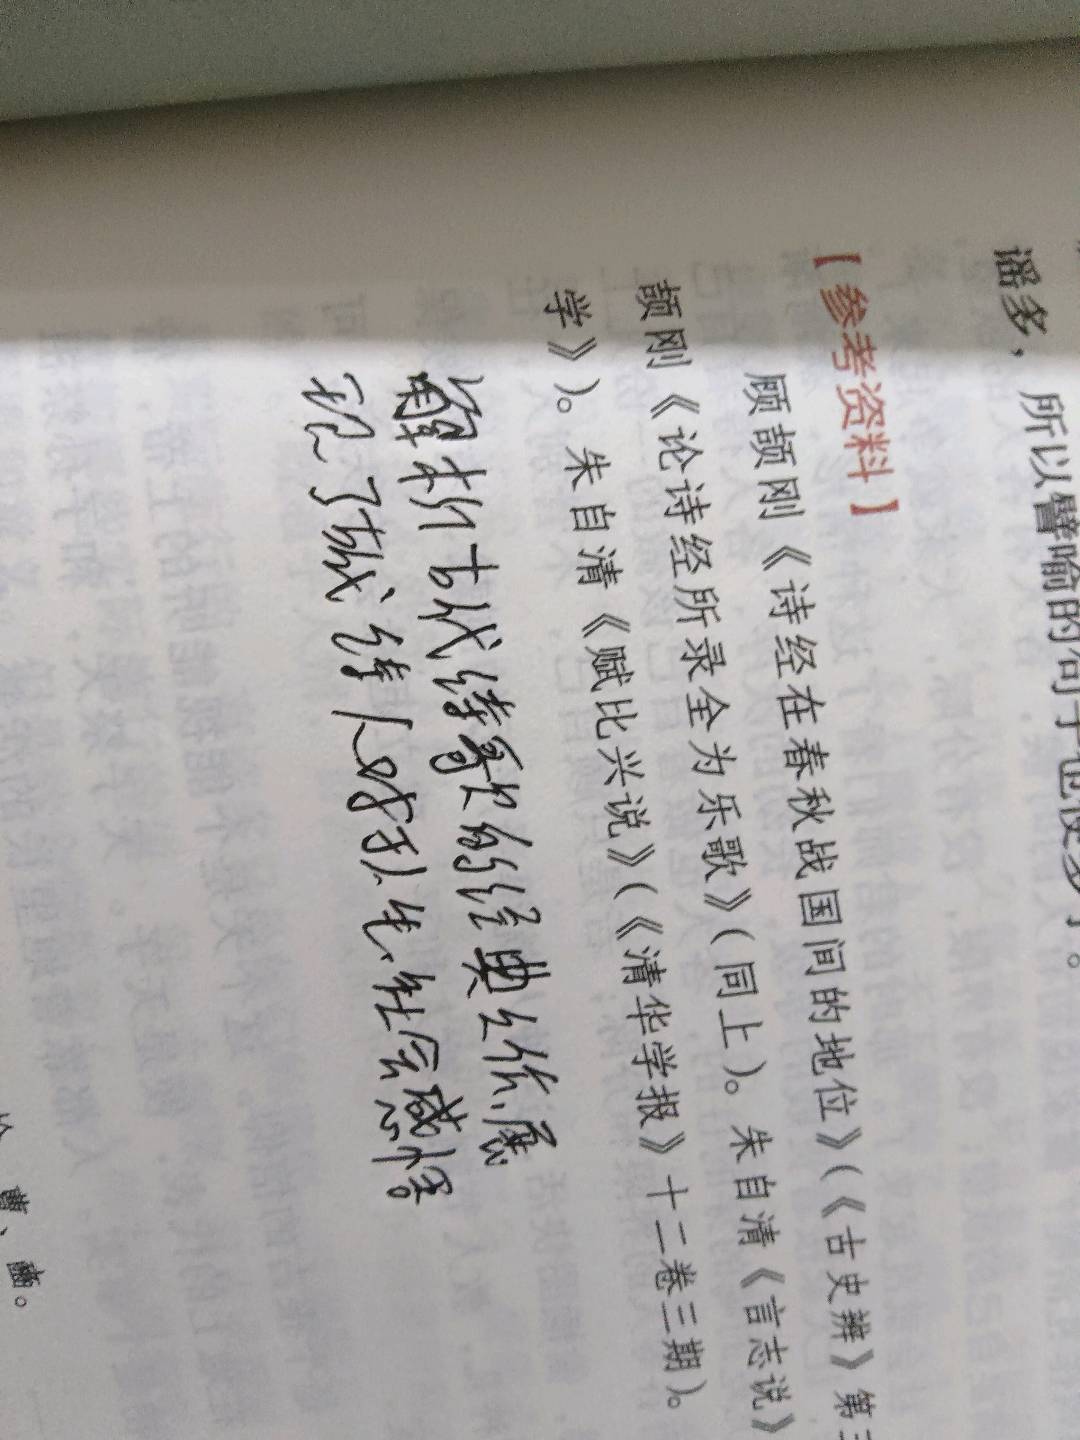 谣多，所以譬喻的句子也便多了。
【参考资料】
顾颉刚《诗经在春秋战国间的地位》(《古史辨》第三
颉刚《论诗经所录全为乐歌》(同上)。朱自清《言志说》
学》)。朱自清《赋比兴说》(《清华学报》十二卷三期)。
解析古代诗歌的经典之作,展
现了诗人对人生、社会感悟
曹、豳。